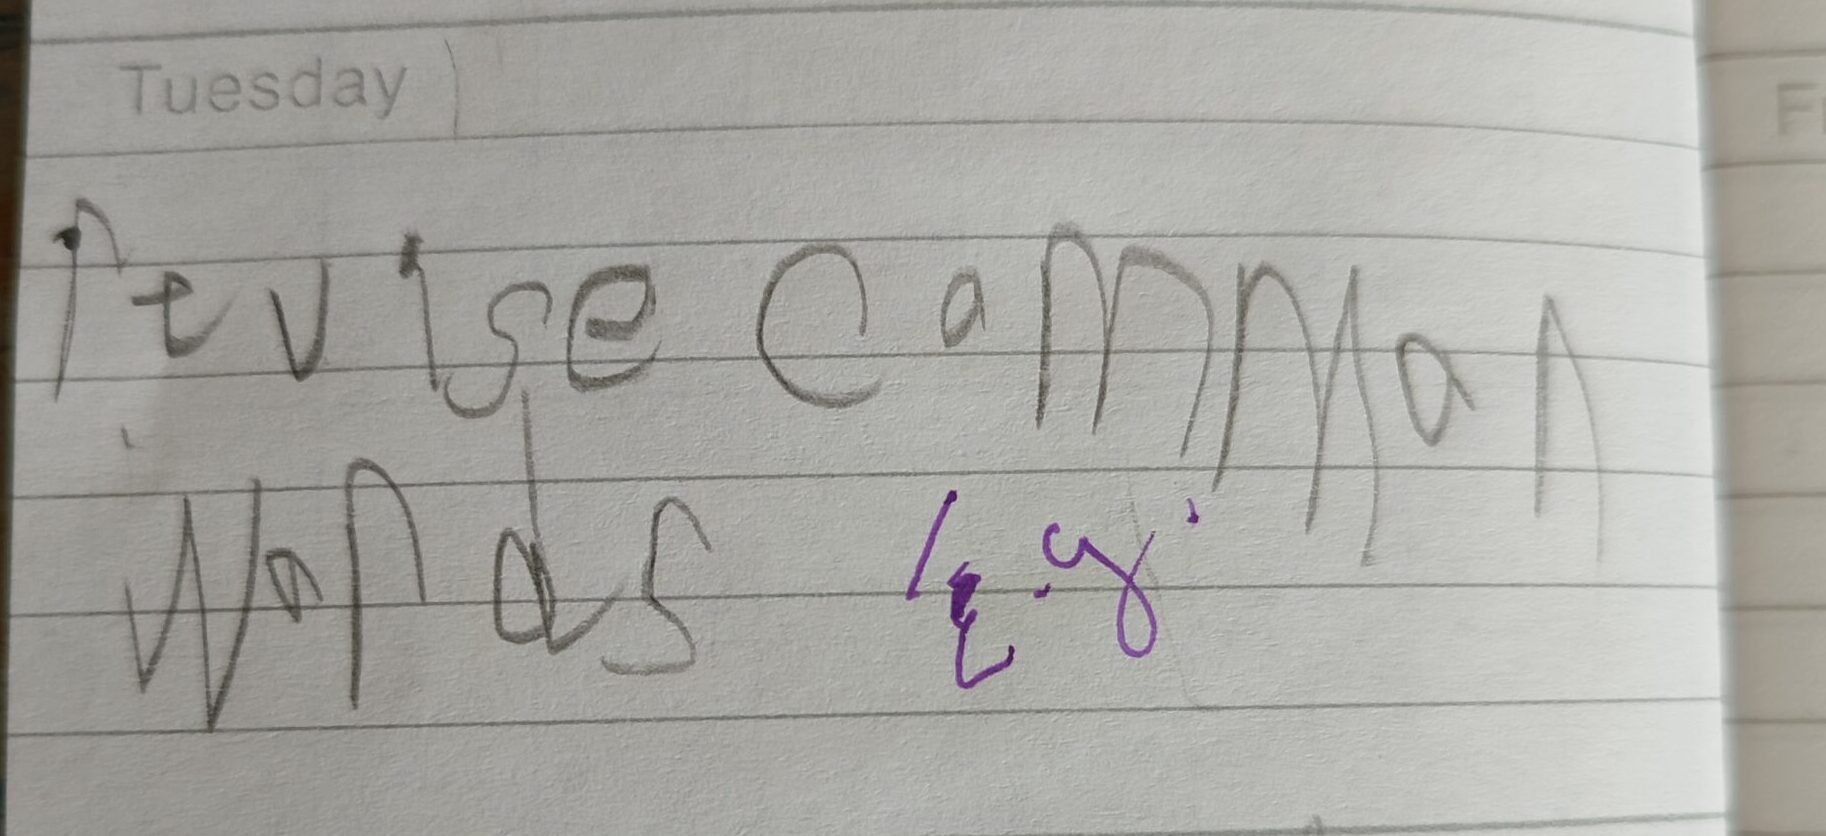 Tuesday
revise common
words